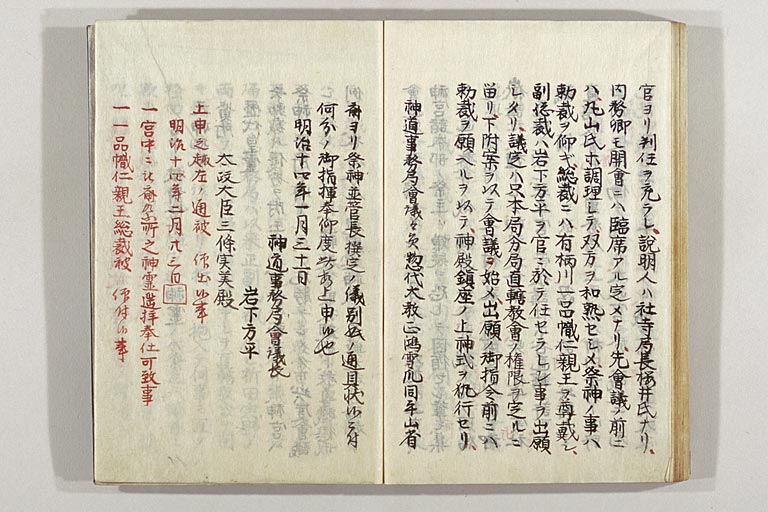 官ヨリ判任ヲ充ラレ、説明人ハ社寺局長桜井氏ナリ、
内務卿モ開會ニハ臨席アル定メナリ、先會議ノ前ニ
ハ丸山氏ホ調理シテ双方ヲ和熟セシメ祭神ノ事ハ
勅裁ヲ仰キ、総裁ニハ有栖川一品幟仁親王ヲ尊戴シ、
副総裁ハ岩下方平ヲ官ニ於テ任セラレシ事ヲ出願
シメリ、議定ハ只本局分局直轄教會ノ権限ヲ定ルニ
留リ、下附案ヲ以テ會議ヲ始メ、出願ノ御指令前ニハ
勅裁ヲ願ヘルヲ以テ、神殿鎮座ノ上神式ヲ執行セリ、
神道事務局會議々員惣代大教正鴻雪爪同平山省
齋ヨリ祭神並管長撰定ノ儀別紙ノ通具状候ニ付
何分ノ御指揮奉仰度此段上申候也
明治十四年一月三十一日
神道事務局會議長
岩下方平
太政大臣三條実美殿
上申之趣左ノ通被仰出候事
明治十四年二月廿三日
一宮中ニ被斎祭所之神霊遥拝奉仕可致事
一一品幟仁親王総裁被仰付候事